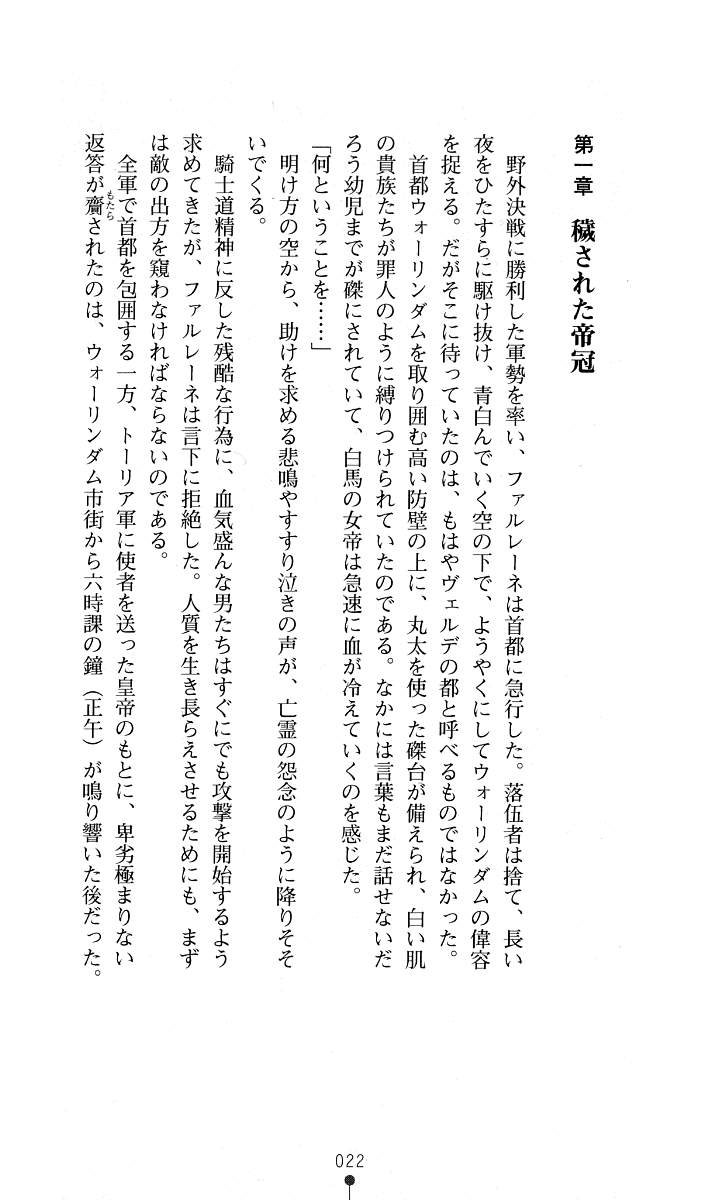 第一章　穢された帝冠
　野外決戦に勝利した軍勢を率い、ファルレーネは首都に急行した。落伍者は捨て、長い
夜をひたすらに駆け抜け、青白んでいく空の下で、ようやくにしてウォーリンダムの偉容
を捉える。だがそこに待っていたのは、もはやヴェルデの都と呼べるものではなかった。
　首都ウォーリンダムを取り囲む高い防壁の上に、丸太を使った磔台が備えられ、白い肌
の貴族たちが罪人のように縛りつけられていたのである。なかには言葉もまだ話せないだ
ろう幼児までが磔にされていて、白馬の女帝は急速に血が冷えていくのを感じた。
「何ということを……」
　明け方の空から、助けを求める悲鳴やすすり泣きの声が、亡霊の怨念のように降りそそ
いでくる。
　騎士道精神に反した残酷な行為に、血気盛んな男たちはすぐにでも攻撃を開始するよう
求めてきたが、ファルレーネは言下に拒絶した。人質を生き長らえさせるためにも、まず
は敵の出方を窺わなければならないのである。
　全軍で首都を包囲する一方、トーリア軍に使者を送った皇帝のもとに、卑劣極まりない
返答が齎もたらされたのは、ウォーリンダム市街から六時課の鐘（正午）が鳴り響いた後だった。
022